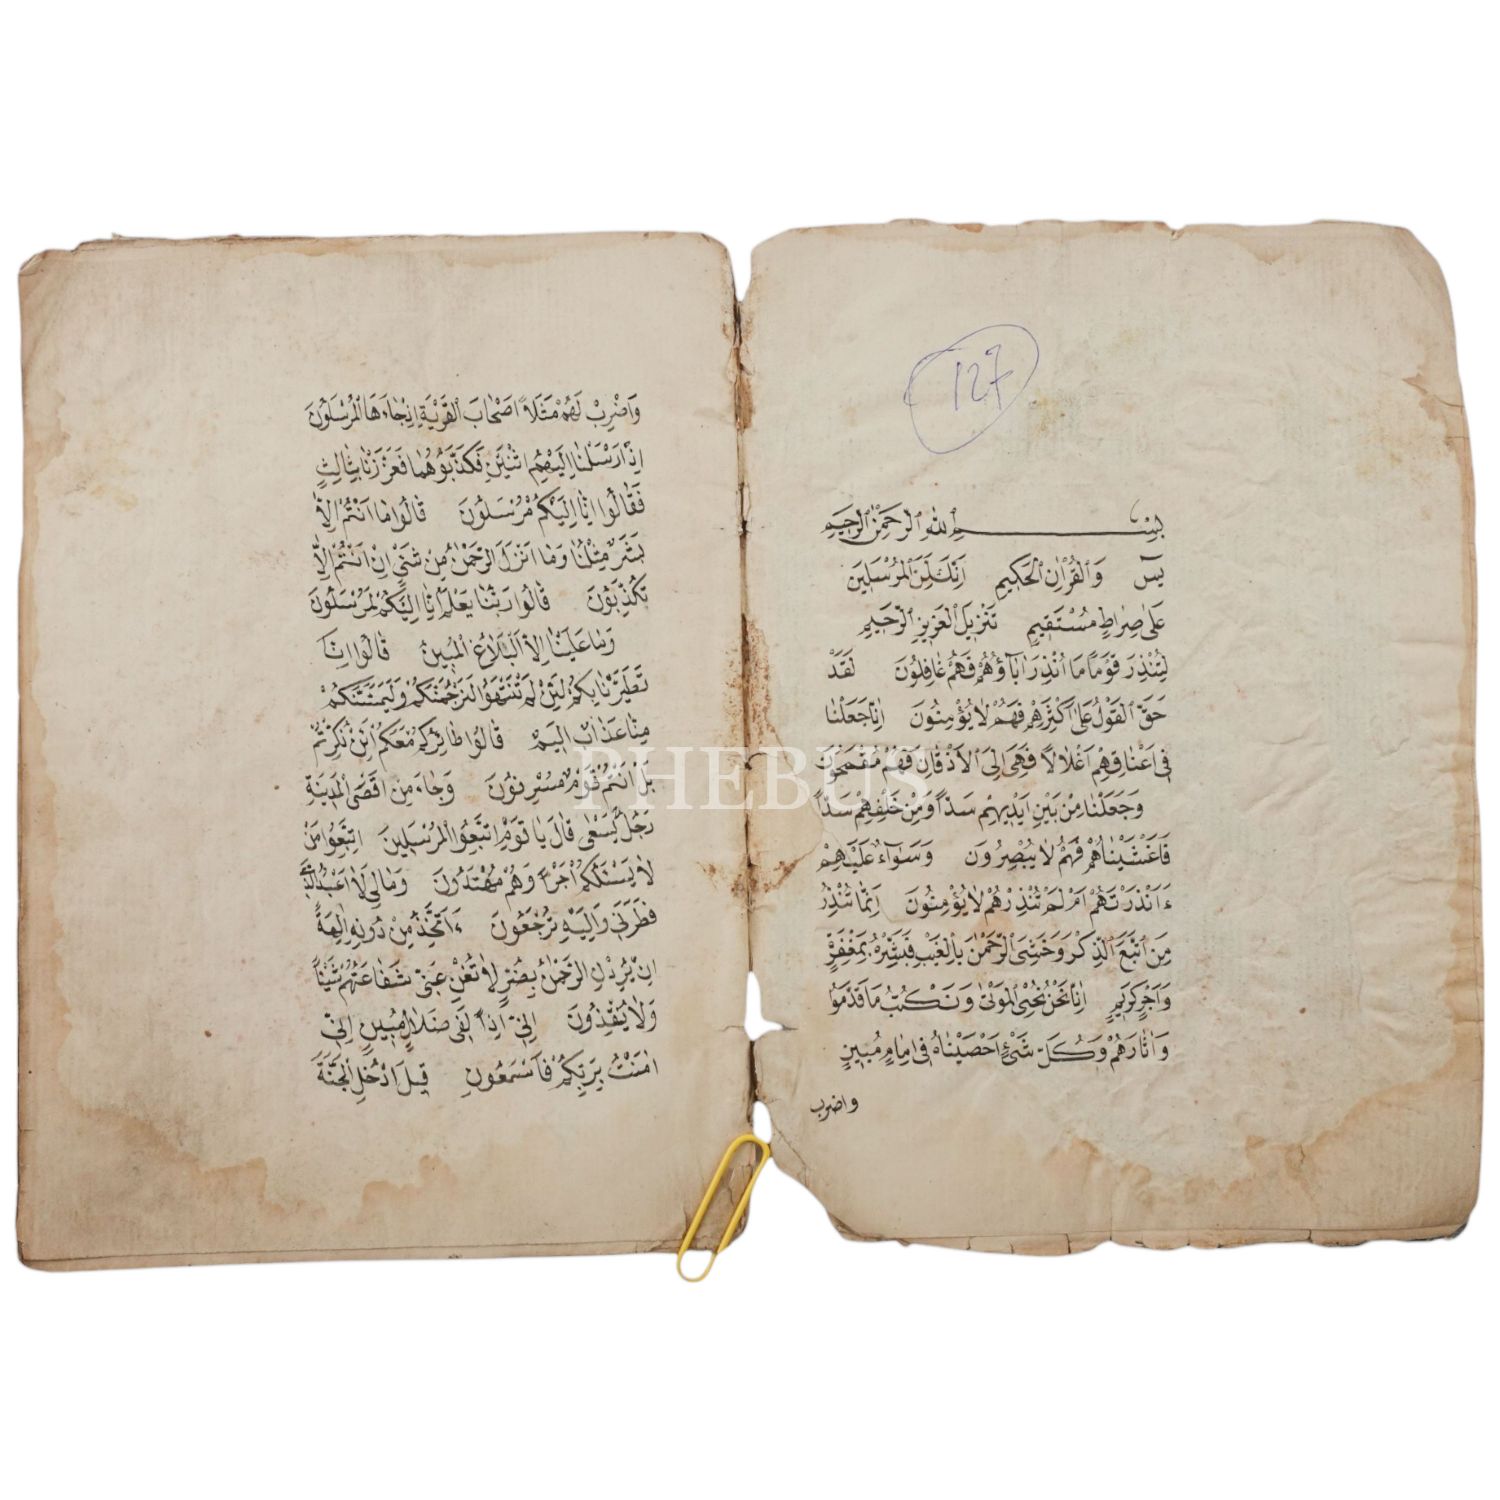 127
بِسْمِ ٱللهِ ٱلرَّحْمٰنِ ٱلرَّحِيمِ
يسٓ وَٱلْقُرْاٰنِ ٱلْحَكِيمِ اِنَّكَ لَمِنَ ٱلْمُرْسَلِينَ
عَلٰى صِرَاطٍ مُسْتَقِيمٍ تَنْزِيلَ ٱلْعَزِيزِ ٱلرَّحِيمِ
لِتُنْذِرَ قَوْمًا مَا اُنْذِرَ اٰبَآؤُهُمْ فَهُمْ غَافِلُونَ لَقَدْ
حَقَّ ٱلْقَوْلُ عَلٰى اَكْثَرِهِمْ فَهُمْ لَا يُؤْمِنُونَ اِنَّا جَعَلْنَا
فِى اَعْنَاقِهِمْ اَغْلَالًا فَهِىَ اِلَى ٱلْاَذْقَانِ فَهُمْ مُقْمَحُونَ
وَجَعَلْنَا مِنْ بَيْنِ اَيْدِيهِمْ سَدًّا وَمِنْ خَلْفِهِمْ سَدًّا
فَاَغْشَيْنَاهُمْ فَهُمْ لَا يُبْصِرُونَ وَسَوَآءٌ عَلَيْهِمْ
ءَاَنْذَرْتَهُمْ اَمْ لَمْ تُنْذِرْهُمْ لَا يُؤْمِنُونَ اِنَّمَا تُنْذِرُ
مَنِ ٱتَّبَعَ ٱلذِّكْرَ وَخَشِىَ ٱلرَّحْمٰنَ بِٱلْغَيْبِ فَبَشِّرْهُ بِمَغْفِرَةٍ
وَاَجْرٍ كَرِيمٍ اِنَّا نَحْنُ نُحْيِى ٱلْمَوْتٰى وَنَكْتُبُ مَا قَدَّمُوا
وَاٰثَارَهُمْ وَكُلَّ شَىْءٍ اَحْصَيْنَاهُ فِى اِمَامٍ مُبِينٍ
واضرب
وَاضْرِبْ لَهُمْ مَثَلًا اَصْحَابَ الْقَرْيَةِ اِذْ جَاءَهَا الْمُرْسَلُونَ
اِذْ اَرْسَلْنَا اِلَيْهِمُ اثْنَيْنِ فَكَذَّبُوهُمَا فَعَزَّزْنَا بِثَالِثٍ
فَقَالُوا اِنَّا اِلَيْكُمْ مُرْسَلُونَ قَالُوا مَا اَنْتُمْ اِلَّا
بَشَرٌ مِثْلُنَا وَمَا اَنْزَلَ الرَّحْمٰنُ مِنْ شَىْءٍ اِنْ اَنْتُمْ اِلَّا
تَكْذِبُونَ قَالُوا رَبُّنَا يَعْلَمُ اِنَّا اِلَيْكُمْ لَمُرْسَلُونَ
وَمَا عَلَيْنَا اِلَّا الْبَلَاغُ الْمُبِينُ قَالُوا اِنَّا
تَطَيَّرْنَا بِكُمْ لَئِنْ لَمْ تَنْتَهُوا لَنَرْجُمَنَّكُمْ وَلَيَمَسَّنَّكُمْ
مِنَّا عَذَابٌ اَلِيمٌ قَالُوا طَائِرُكُمْ مَعَكُمْ اَئِنْ ذُكِّرْتُمْ
بَلْ اَنْتُمْ قَوْمٌ مُسْرِفُونَ وَجَاءَ مِنْ اَقْصَى الْمَدِينَةِ
رَجُلٌ يَسْعٰى قَالَ يَا قَوْمِ اتَّبِعُوا الْمُرْسَلِينَ اتَّبِعُوا مَنْ
لَا يَسْئَلُكُمْ اَجْرًا وَهُمْ مُهْتَدُونَ وَمَا لِىَ لَا اَعْبُدُ الَّذِى
فَطَرَنِى وَاِلَيْهِ تُرْجَعُونَ ءَاَتَّخِذُ مِنْ دُونِهِ اٰلِهَةً
اِنْ يُرِدْنِ الرَّحْمٰنُ بِضُرٍّ لَا تُغْنِ عَنِّى شَفَاعَتُهُمْ شَيْئًا
وَلَا يُنْقِذُونِ اِنِّى اِذًا لَفِى ضَلَالٍ مُبِينٍ اِنِّى
اٰمَنْتُ بِرَبِّكُمْ فَاسْمَعُونِ قِيلَ ادْخُلِ الْجَنَّةَ
PHEBUS